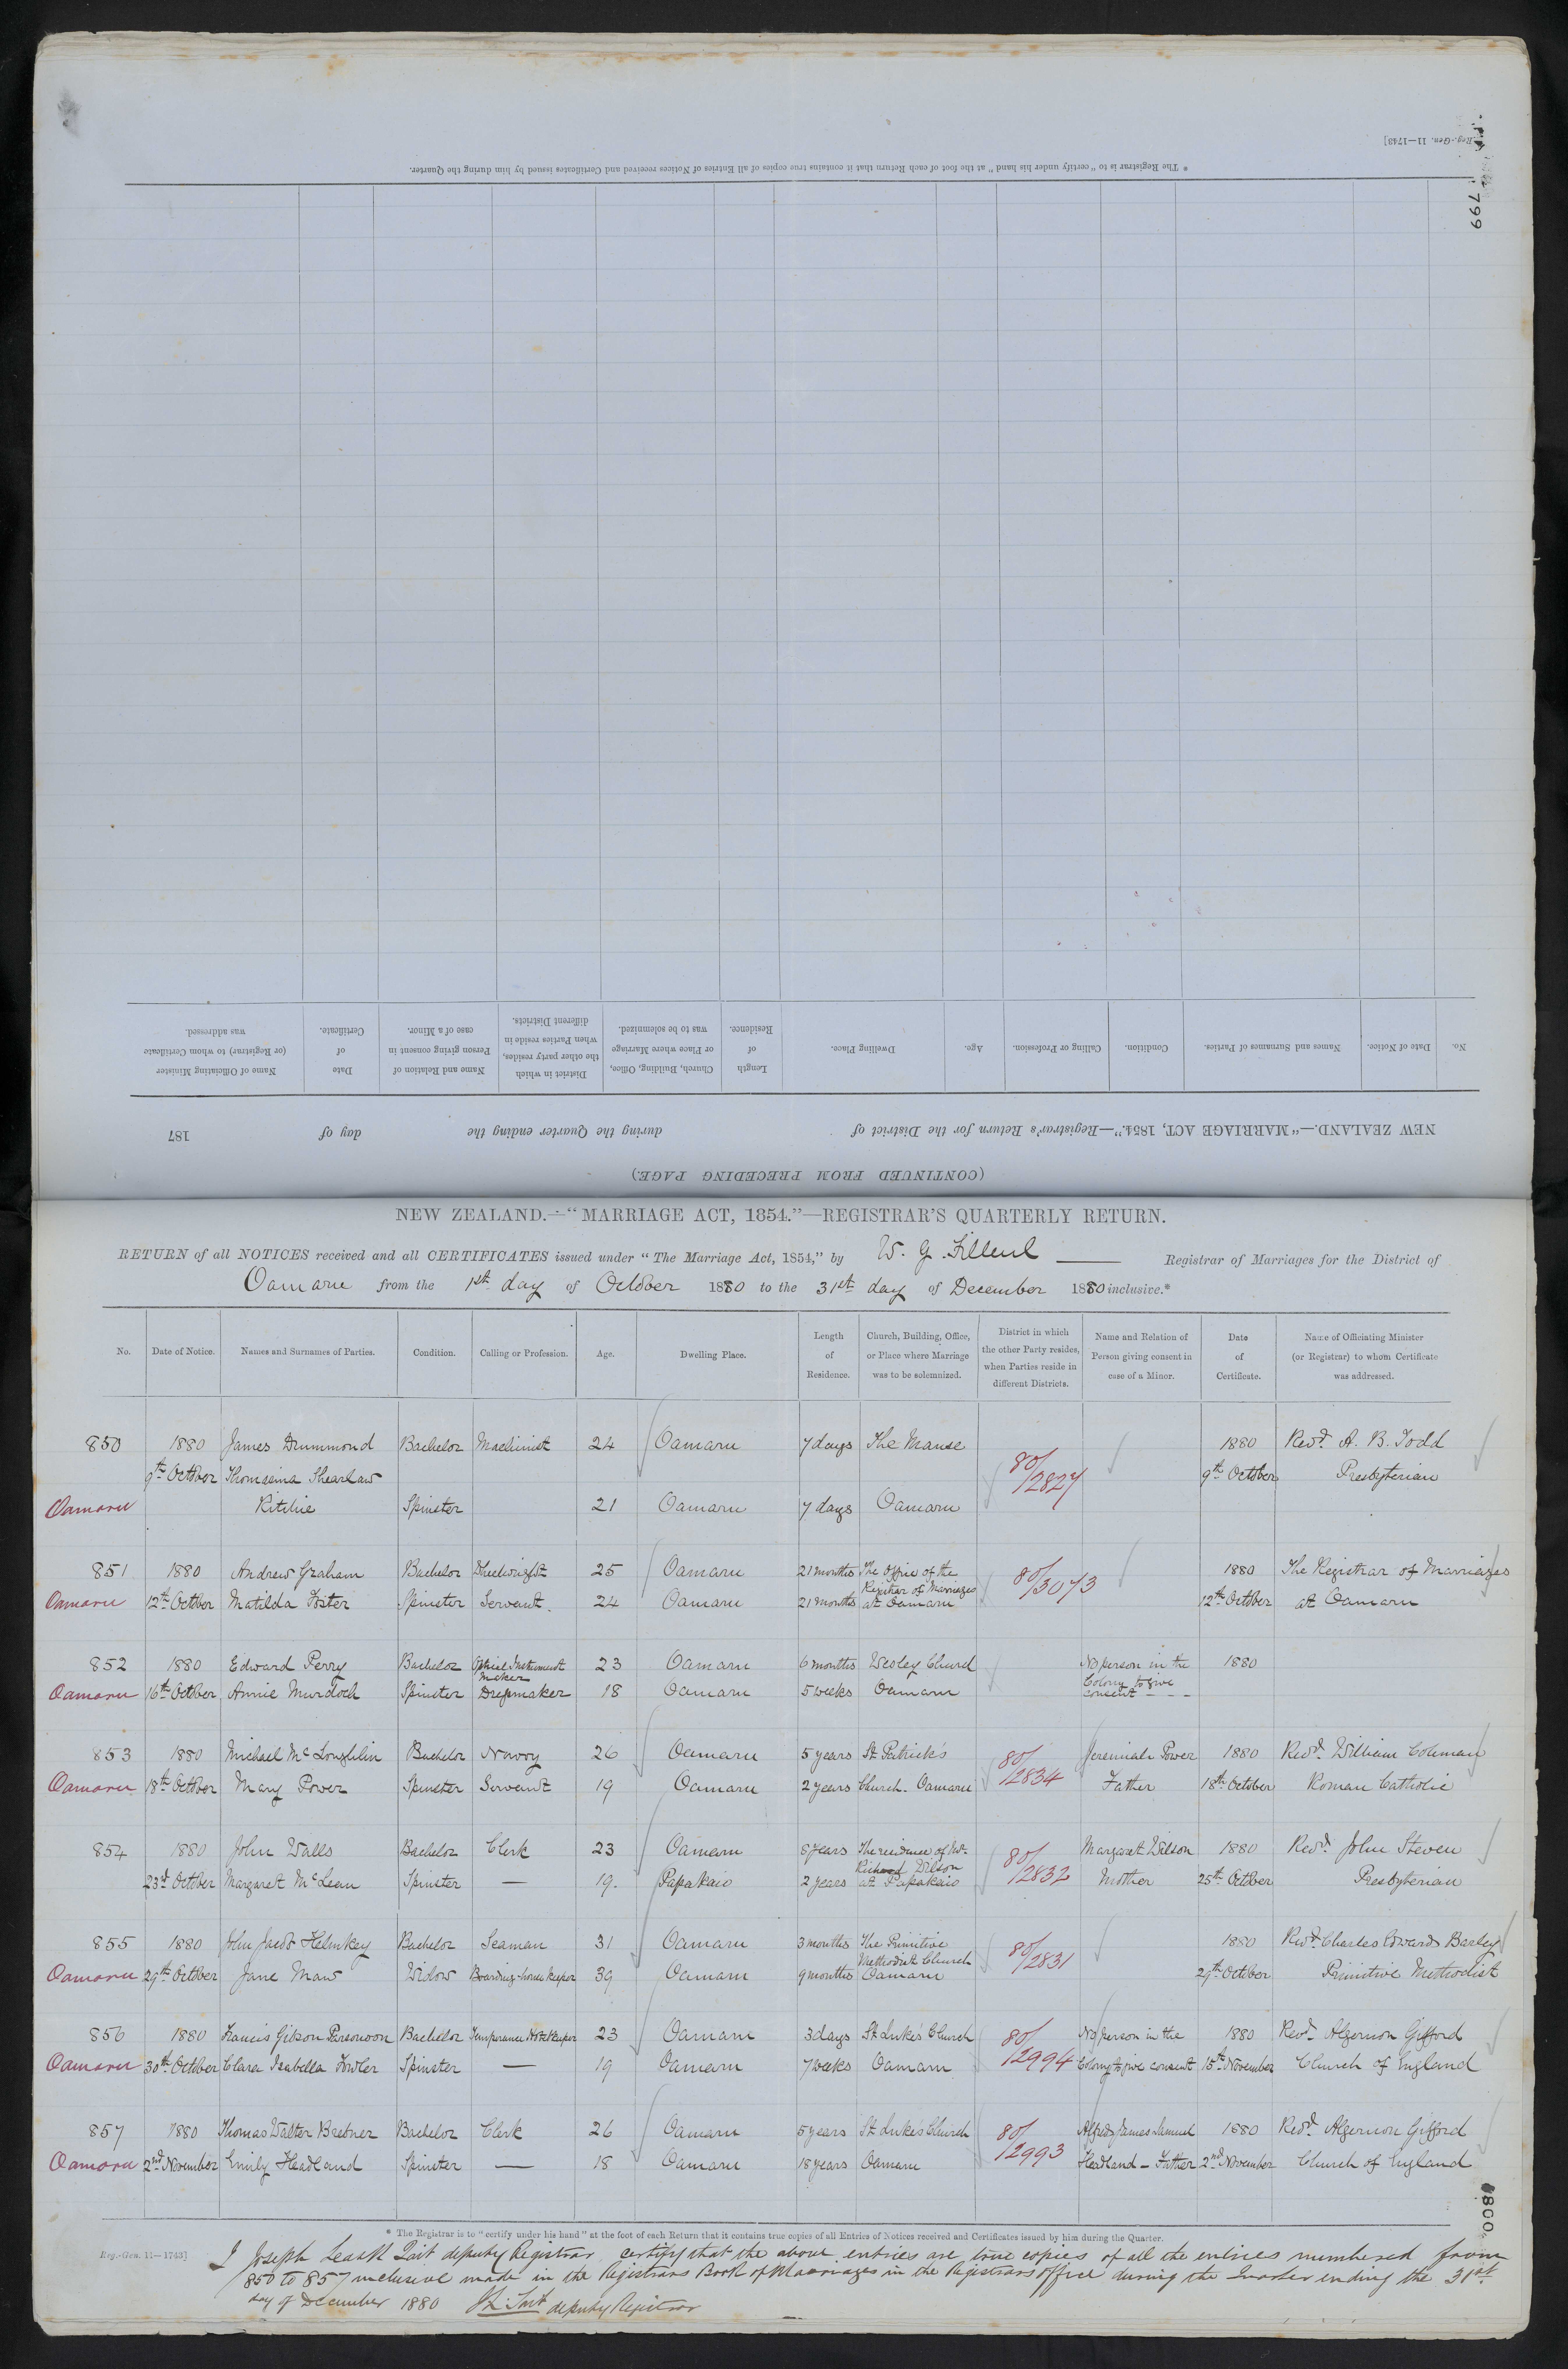 Reg.-Gen. 11—1743]
* The Registrar is to "certify under his hand" at the foot of each Return that it contains true copies of all Entries of Notices received and Certificates issued by him during the Quarter.
799
No.
Date of Notice.
Names and Surnames of Parties.
Condition.
Calling or Profession.
Age.
Dwelling Place.
Length
of
Residence.
Church, Building, Office,
or Place where Marriage
was to be solemnized.
District in which
the other party resides,
when Parties reside in
different Districts.
Name and Relation of
Person giving consent in
case of a Minor.
Date
of
Certificate.
Name of Officiating Minister
(or Registrar) to whom Certificate
was addressed.
NEW ZEALAND.—"MARRIAGE ACT, 1854."—Registrar's Return for the District of during the Quarter ending the day of 187
(CONTINUED FROM PRECEDING PAGE.)
NEW ZEALAND.—"MARRIAGE ACT, 1854."—REGISTRAR'S QUARTERLY RETURN.
RETURN of all NOTICES received and all CERTIFICATES issued under "The Marriage Act, 1854," by W. G. Filleul Registrar of Marriages for the District of
Oamaru from the 1st day of October 1880 to the 31st day of December 1880 inclusive.*
No.
Date of Notice.
Names and Surnames of Parties.
Condition.
Calling or Profession.
Age.
Dwelling Place.
Length
of
Residence.
Church, Building, Office,
or Place where Marriage
was to be solemnized.
District in which
the other Party resides,
when Parties reside in
different Districts.
Name and Relation of
Person giving consent in
case of a Minor.
Date
of
Certificate.
Name of Officiating Minister
(or Registrar) to whom Certificate
was addressed.
850 1880 James Drummond Bachelor Machinist 24 Oamaru 7 days The Manse 80/2827 1880 Revd. A. B. Todd
9th October Thomasina Shearlaw 9th October Presbyterian
Oamaru Ritchie Spinster 21 Oamaru 7 days Oamaru
851 1880 Andrew Graham Bachelor Wheelwright 25 Oamaru 21 months The Office of the Registrar of Marriages 80/3073 1880 The Registrar of Marriages
Oamaru 12th October Matilda Foster Spinster Servant. 24 Oamaru 21 months at Oamaru 12th October at Oamaru
852 1880 Edward Perry Bachelor Optical Instrument Maker 23 Oamaru 6 months Wesley Church No person in the 1880
Oamaru 16th October Annie Murdoch Spinster Dressmaker 18 Oamaru 5 weeks Oamaru Colony to give consent - - -
853 1880 Michael McLoughlin Bachelor Navvy 26 Oamaru 5 years St Patrick's 80/2834 Jeremiah Power 1880 Revd. William Coleman
Oamaru 18th October Mary Power Spinster Servant 19 Oamaru 2 years Church. Oamaru Father 18th October Roman Catholic
854 1880 John Walls Bachelor Clerk 23 Oamaru 8 years The residence of Mr. Richard Wilson 80/2832 Margaret Wilson 1880 Revd. John Steven
23d October Margaret McLean Spinster — 19. Papakaio 2 years at Papakaio Mother 25th October Presbyterian
855 1880 John Jacob Helmkey Bachelor Seaman 31 Oamaru 3 months The Primitive Methodist Church 80/2831 1880 Revd. Charles Edward Barley
Oamaru 29th October Jane Maw Widow Boarding-house Keeper 39 Oamaru 9 months Oamaru 29th October Primitive Methodist
856 1880 Francis Gibson Bachelor Temperance Hotelkeeper 23 Oamaru 3 days St Luke's Church 80/2994 No person in the 1880 Revd. Algernon Gifford
Oamaru 30th October Clara Isabella Fowler Spinster — 19 Oamaru 7 weeks Oamaru Colony to give consent 15th November Church of England
857 1880 Thomas Walter Bastner Bachelor Clerk 26 Oamaru 5 years St Luke's Church 80/2993 Alfred James Samuel 1880 Revd. Algernon Gifford
Oamaru 2nd November Emily Headland Spinster — 18 Oamaru 18 years Oamaru Headland - Father 2nd November Church of England
0800
* The Registrar is to "certify under his hand" at the foot of each Return that it contains true copies of all Entries of Notices received and Certificates issued by him during the Quarter.
Reg.-Gen. 11—1743]
I Joseph Leask Tait deputy Registrar certify that the above entries are true copies of all the entries numbered from
850 to 857 inclusive made in the Registrars Book of Marriages in the Registrars office during the Quarter ending the 31st
day of December 1880 deputy Registrar